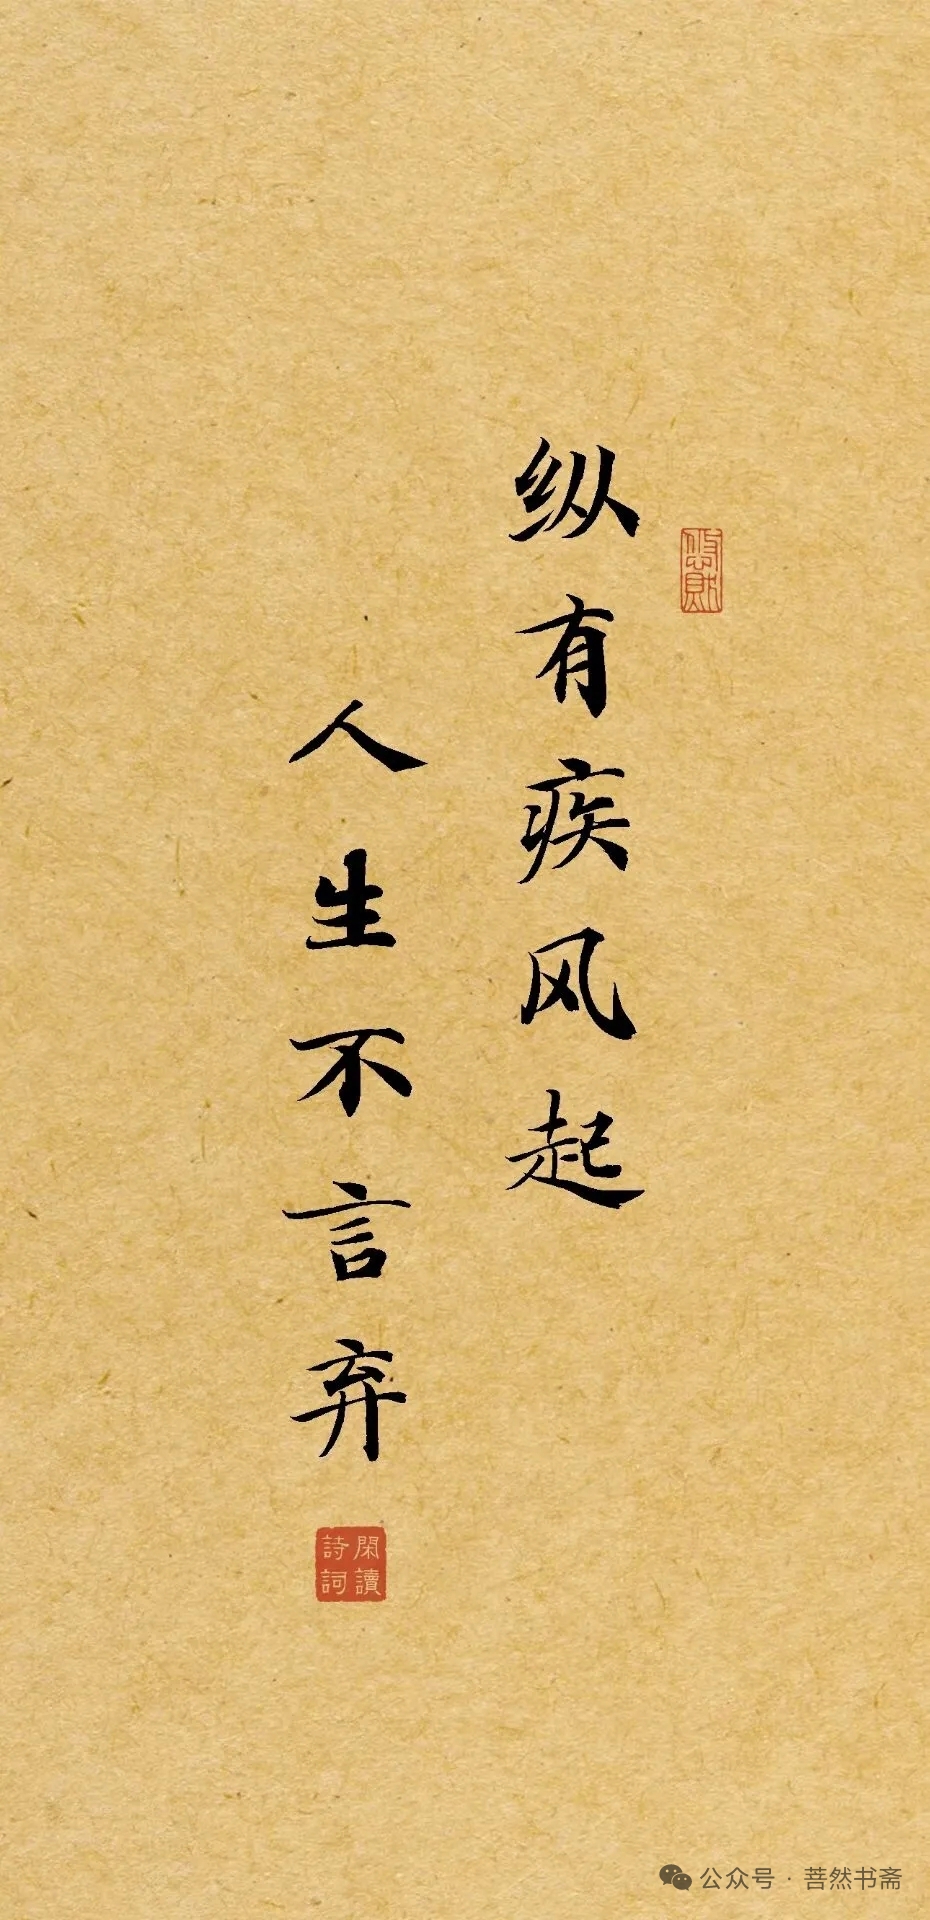 纵有疾风起
人生不言弃
閑讀
詩詞
公众号·菩然书斋